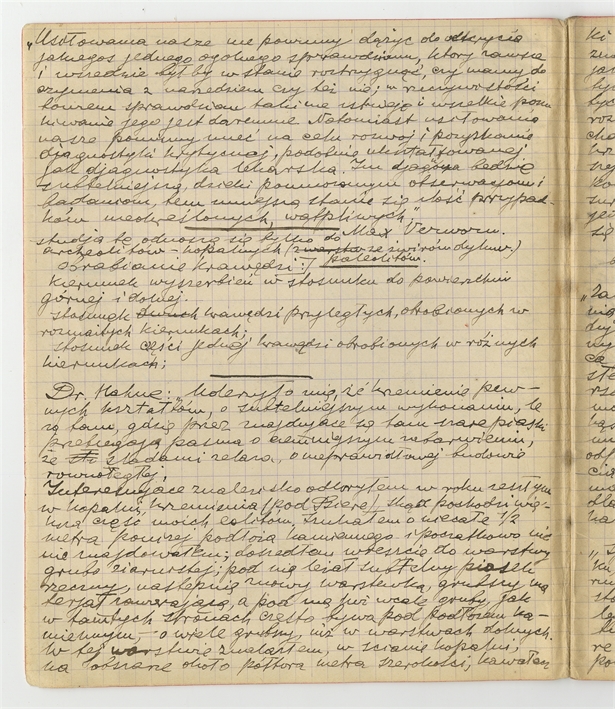 "Usiłowania nasze nie powinny dążyć do odkrycia
jakiegoś jednego ogólnego sprawdzianu, który zawsze
i wszędzie był by w stanie rostrzygnąć, czy mamy do
czynienia z narzędziem czy też nie; w rzeczywistości
bowiem sprawdzian taki nie istnieje i wszelkie poszu
kiwanie jego jest daremne. Natomiast usiłowania
nasze powinny mieć na celu rozwój i pozyskanie
djagnostyki krytycznej, podobnie ukształtowanej
jak djagnostyka lekarska. Im djagnoza będzie
subtelniejszą, dzięki pomnożonym obserwacjom i
badaniom, tem mniejszą stanie się ilość przypad-
ków nieokreślonych, wątpliwych."
studja te odnoszą się tylko do Max Verworn.
archeolitów kopalnych (z warstw ze żwirów dyluw.)
obrabianie krawędzi:/ paleolitów.
kierunek wyszczerbień w stosunku do powierzchni
górnej i dolnej.
stosunek dwuch krawędzi przyległych, obrobionych w
rozmaitych kierunkach;
stosunek części jednej krawędzi obrobionych w różnych
kierunkach;
Dr. Hahne: "Uderzyło mię, iż krzemienie pew-
nych kształtów, o subtelniejszym wykonaniu, le
żą tam, gdzie przez znajdujące się tam szare piaski
przebiegają pasma o ciemniejszym zabarwieniu,
ze śladami żelaza, o nieprawidłowej budowie
równoległej.
Interesujące znalezisko odkryłem w roku zeszłym
w kopalni krzemienia (pod Biere) skąd pochodzi wię-
ksza część moich eolitów. Szukałem o niecałe 1/2
metra poniżej podłoża kamiennego i początkowo nic
nie znajdowałem; doszedłem wreszcie do warstwy
grubo ziarnistej; pod nią leżał subtelny piasek
rzeczny, następnie znowy warstewka, grubszy ma
terjał zawierająca, a pod nią już wcale gruby, jak
w tamtych stronach często bywa pod podłożem ka-
miennym, - o wiele grubszy, niż w warstwach dolnych.
W tej warstwie znalazłem, w ścianie kopalni,
na obszarze około półtora metra szerokości, kawałek